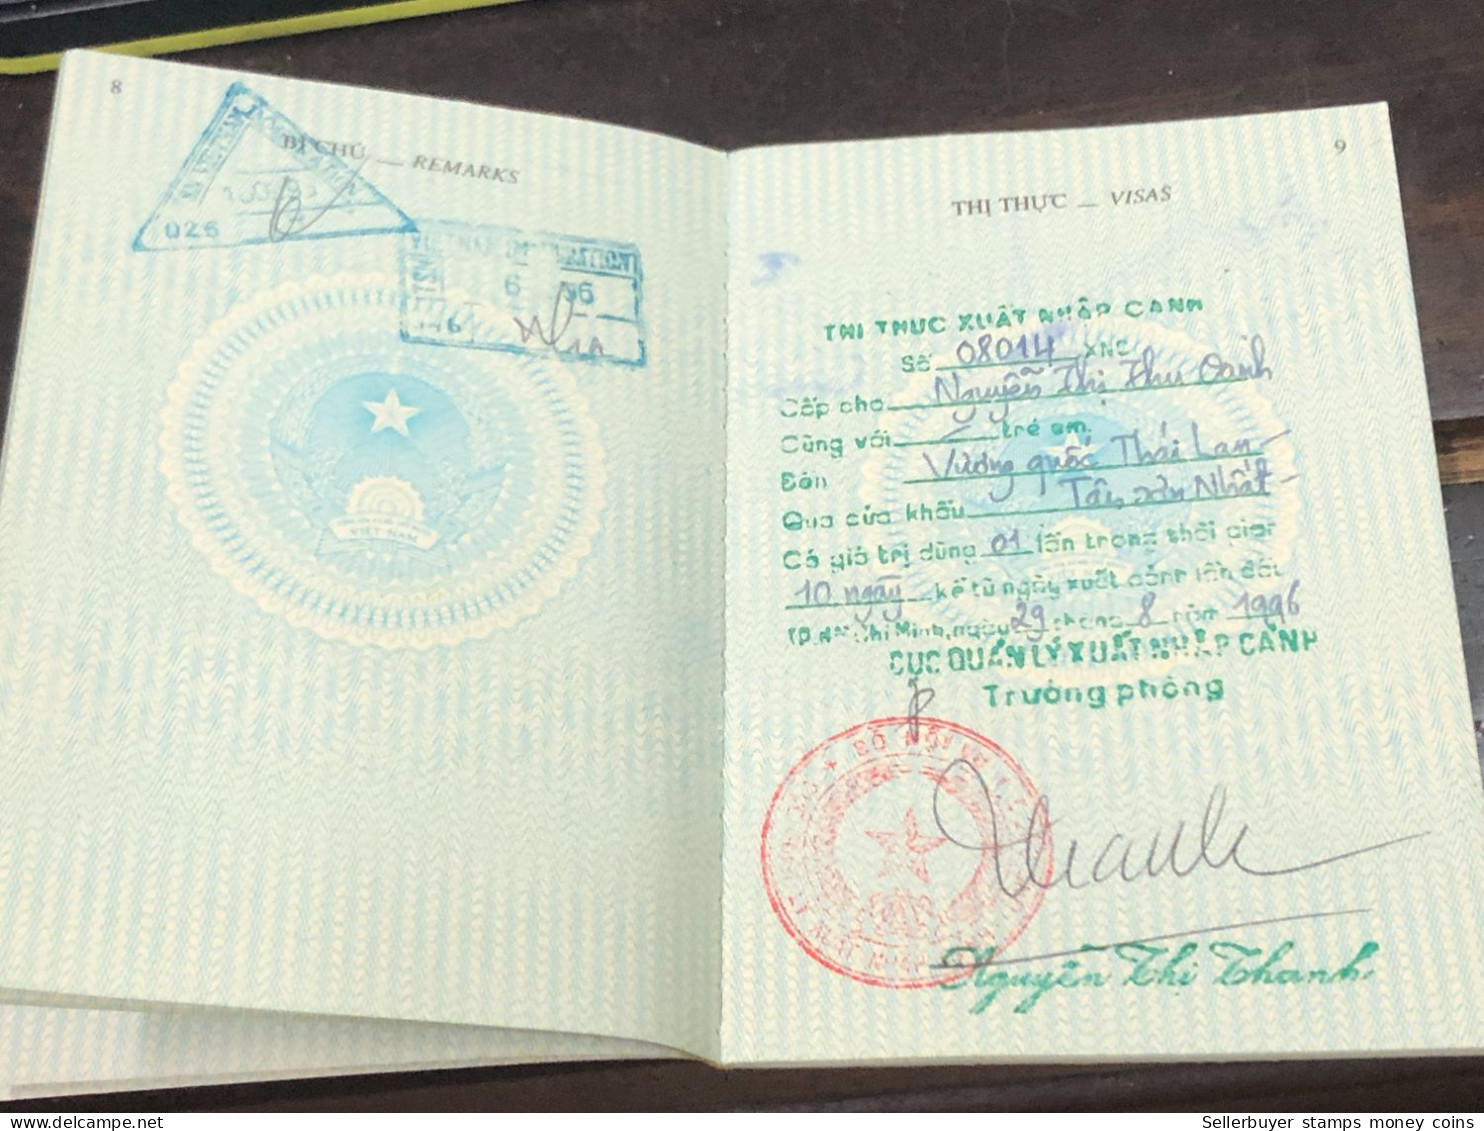 8
BỊ CHÚ — REMARKS
026
VIỆT NAM
6 96
9
THỊ THỰC — VISAS
THỊ THỰC XUẤT NHẬP CẢNH
Số 08014 XNC
Cấp cho Nguyễn Thị Thu Oanh
Cùng với trẻ em.
Đến Vương quốc Thái Lan
Qua cửa khẩu Tân Sơn Nhất
Có giá trị dùng 01 lần trong thời gian
10 ngày kể từ ngày xuất cảnh lần đầu
TP. Hồ Chí Minh, ngày 29 tháng 8 năm 1996
CỤC QUẢN LÝ XUẤT NHẬP CẢNH
Trưởng phòng
BỘ NỘI VỤ
Nguyễn Thị Thanh
Sellerbuyer stamps money coins